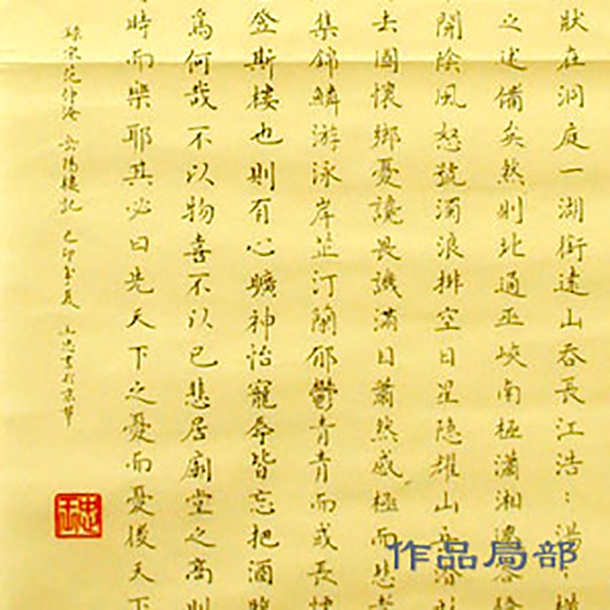 状在洞庭一湖衔远山吞长江浩：湯：横
之述備矣然则北通巫峡南極瀟湘遷客
開陰風怒號濁浪排空日星隐耀山岳潜形
去國懷鄉憂讒畏譏滿目蕭然感極而悲者
集錦鱗游泳岸芷汀蘭郁鬱青青而或長
登斯樓也则有心曠神怡寵辱皆忘把酒臨
為何哉不以物喜不以已悲居廟堂之高则
時而樂耶其必曰先天下之憂而憂後天下
錄宋范仲淹岳陽樓記 己卯年夏 玉忠書於京華
玉忠
作品局部